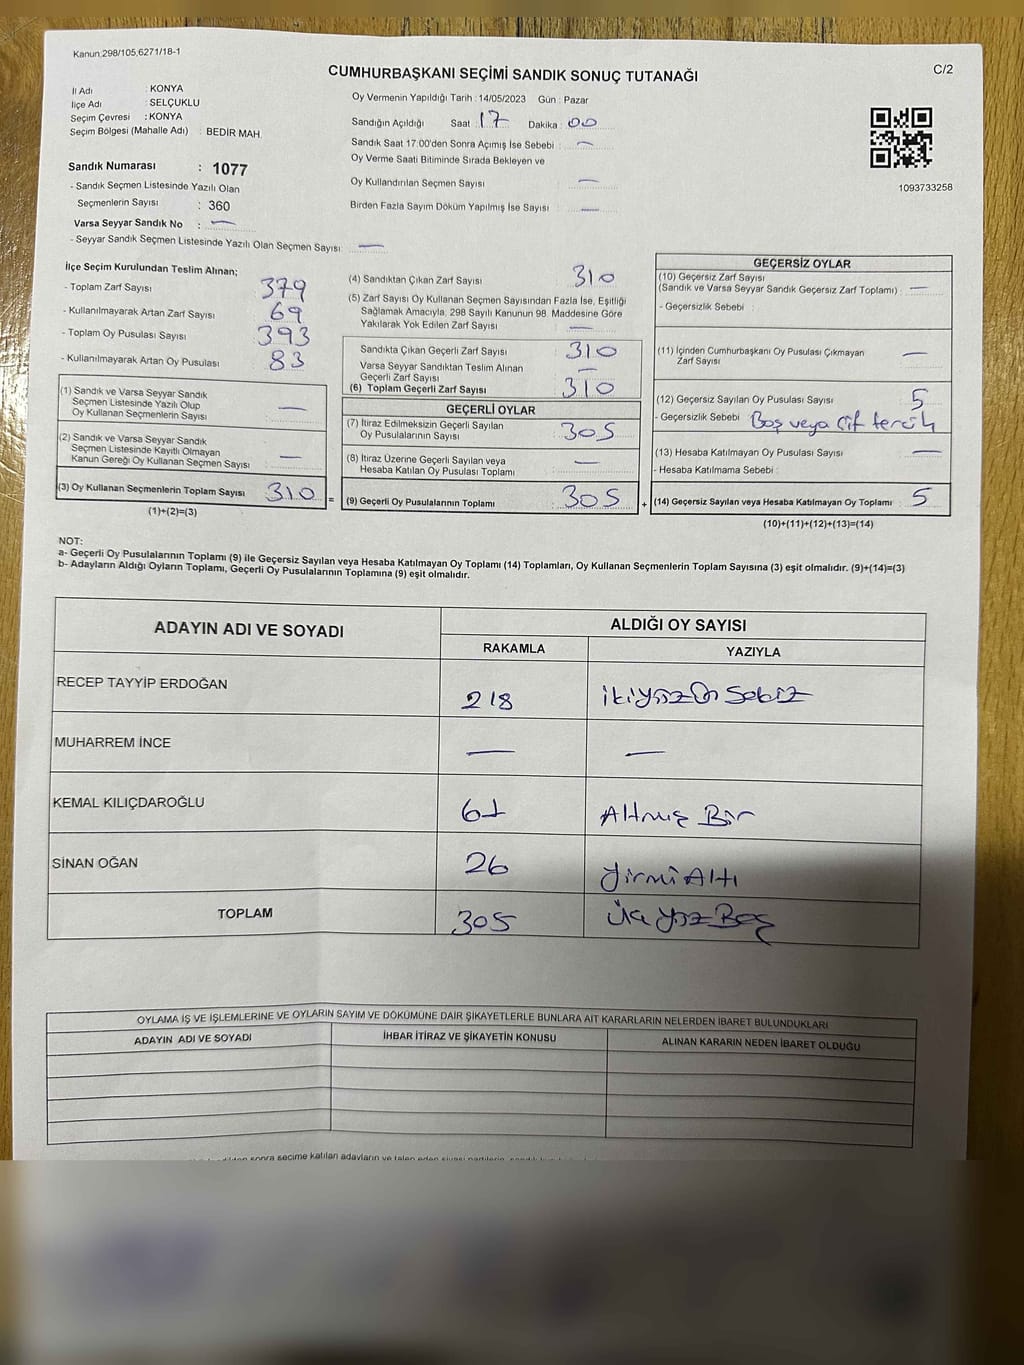 Kanun,298/105,6271/18-1
CUMHURBAŞKANI SEÇİMİ SANDIK SONUÇ TUTANAĞI
C/2
İl Adı : KONYA
İlçe Adı : SELÇUKLU
Seçim Çevresi : KONYA
Seçim Bölgesi (Mahalle Adı) : BEDİR MAH.
Oy Vermenin Yapıldığı Tarih : 14/05/2023 Gün : Pazar
Sandığın Açıldığı Saat 17 Dakika 00
Sandık Saat 17:00'den Sonra Açımış İse Sebebi : —
Oy Verme Saati Bitiminde Sırada Bekleyen ve
Oy Kullandırılan Seçmen Sayısı —
Birden Fazla Sayım Döküm Yapılmış İse Sayısı —
1093733258
Sandık Numarası : 1077
- Sandık Seçmen Listesinde Yazılı Olan
Seçmenlerin Sayısı : 360
Varsa Seyyar Sandık No : —
- Seyyar Sandık Seçmen Listesinde Yazılı Olan Seçmen Sayısı: —
İlçe Seçim Kurulundan Teslim Alınan;
- Toplam Zarf Sayısı 379
- Kullanılmayarak Artan Zarf Sayısı 69
- Toplam Oy Pusulası Sayısı 393
- Kullanılmayarak Artan Oy Pusulası 83
(1) Sandık ve Varsa Seyyar Sandık
Seçmen Listesinde Yazılı Olup
Oy Kullanan Seçmenlerin Sayısı —
(2) Sandık ve Varsa Seyyar Sandık
Seçmen Listesinde Kayıtlı Olmayan
Kanun Gereği Oy Kullanan Seçmen Sayısı —
(3) Oy Kullanan Seçmenlerin Toplam Sayısı 310 =
(1)+(2)=(3)
(4) Sandıktan Çıkan Zarf Sayısı 310
(5) Zarf Sayısı Oy Kullanan Seçmen Sayısından Fazla İse, Eşitliği
Sağlamak Amacıyla, 298 Sayılı Kanunun 98. Maddesine Göre
Yakılarak Yok Edilen Zarf Sayısı —
Sandıkta Çıkan Geçerli Zarf Sayısı 310
Varsa Seyyar Sandıktan Teslim Alınan
Geçerli Zarf Sayısı —
(6) Toplam Geçerli Zarf Sayısı 310
GEÇERLİ OYLAR
(7) İtiraz Edilmeksizin Geçerli Sayılan
Oy Pusulalarının Sayısı 305
(8) İtiraz Üzerine Geçerli Sayılan veya
Hesaba Katılan Oy Pusulası Toplamı —
(9) Geçerli Oy Pusulalarının Toplamı 305 +
GEÇERSİZ OYLAR
(10) Geçersiz Zarf Sayısı
(Sandık ve Varsa Seyyar Sandık Geçersiz Zarf Toplamı) : —
- Geçersizlik Sebebi :
(11) İçinden Cumhurbaşkanı Oy Pusulası Çıkmayan
Zarf Sayısı —
(12) Geçersiz Sayılan Oy Pusulası Sayısı 5
- Geçersizlik Sebebi Boş veya Çif tercih
(13) Hesaba Katılmayan Oy Pusulası Sayısı —
- Hesaba Katılmama Sebebi :
(14) Geçersiz Sayılan veya Hesaba Katılmayan Oy Toplamı 5
(10)+(11)+(12)+(13)=(14)
NOT:
a- Geçerli Oy Pusulalarının Toplamı (9) ile Geçersiz Sayılan veya Hesaba Katılmayan Oy Toplamı (14) Toplamları, Oy Kullanan Seçmenlerin Toplam Sayısına (3) eşit olmalıdır. (9)+(14)=(3)
b- Adayların Aldığı Oyların Toplamı, Geçerli Oy Pusulalarının Toplamına (9) eşit olmalıdır.
ADAYIN ADI VE SOYADI ALDIĞI OY SAYISI
RAKAMLA YAZIYLA
RECEP TAYYİP ERDOĞAN 218 İkiyüzOn Sekiz
MUHARREM İNCE — —
KEMAL KILIÇDAROĞLU 61 Altmış Bir
SİNAN OĞAN 26 YirmiAltı
TOPLAM 305 Üç YüzBeş
OYLAMA İŞ VE İŞLEMLERİNE VE OYLARIN SAYIM VE DÖKÜMÜNE DAİR ŞİKAYETLERLE BUNLARA AİT KARARLARIN NELERDEN İBARET BULUNDUKLARI
ADAYIN ADI VE SOYADI İHBAR İTİRAZ VE ŞİKAYETİN KONUSU ALINAN KARARIN NEDEN İBARET OLDUĞU
sonra seçime katılan adayların ve talep eden siyasi partilerin